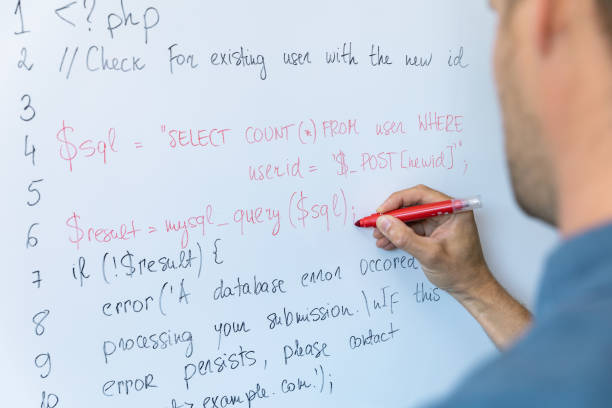 1 <?php
2 //Check For existing user with the new id
3
4 $sql = "SELECT COUNT(*) FROM user WHERE
5 userid = '$_POST[newid]'";
6 $result = mysql_query($sql);
7 if (!$result) {
8 error('A database error occored
9 processing your submission.\nIF this
10 error persists, please contact
example.com.');